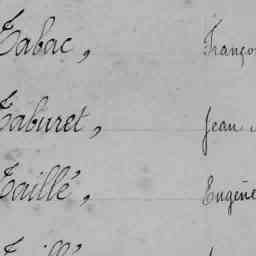 Tabac, Franço
Taburet, Jean
Taillé, Eugène